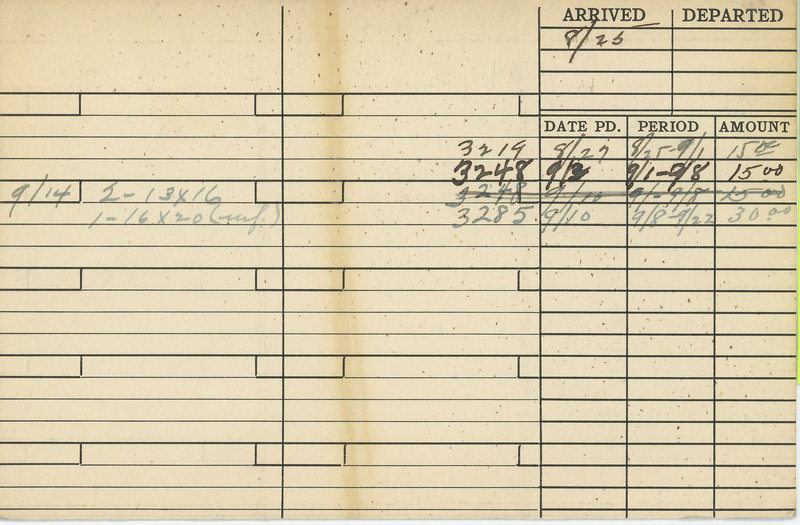 ARRIVED DEPARTED
8/25
DATE PD. PERIOD AMOUNT
3219 8/27 8/25-9/1 15 00
3248 9/2 9/1-9/8 15 00
9/14 2-13X16 3248 9/10 9/1-9/8 15 00
1-16X20 3285 9/10 9/8-9/22 30 00